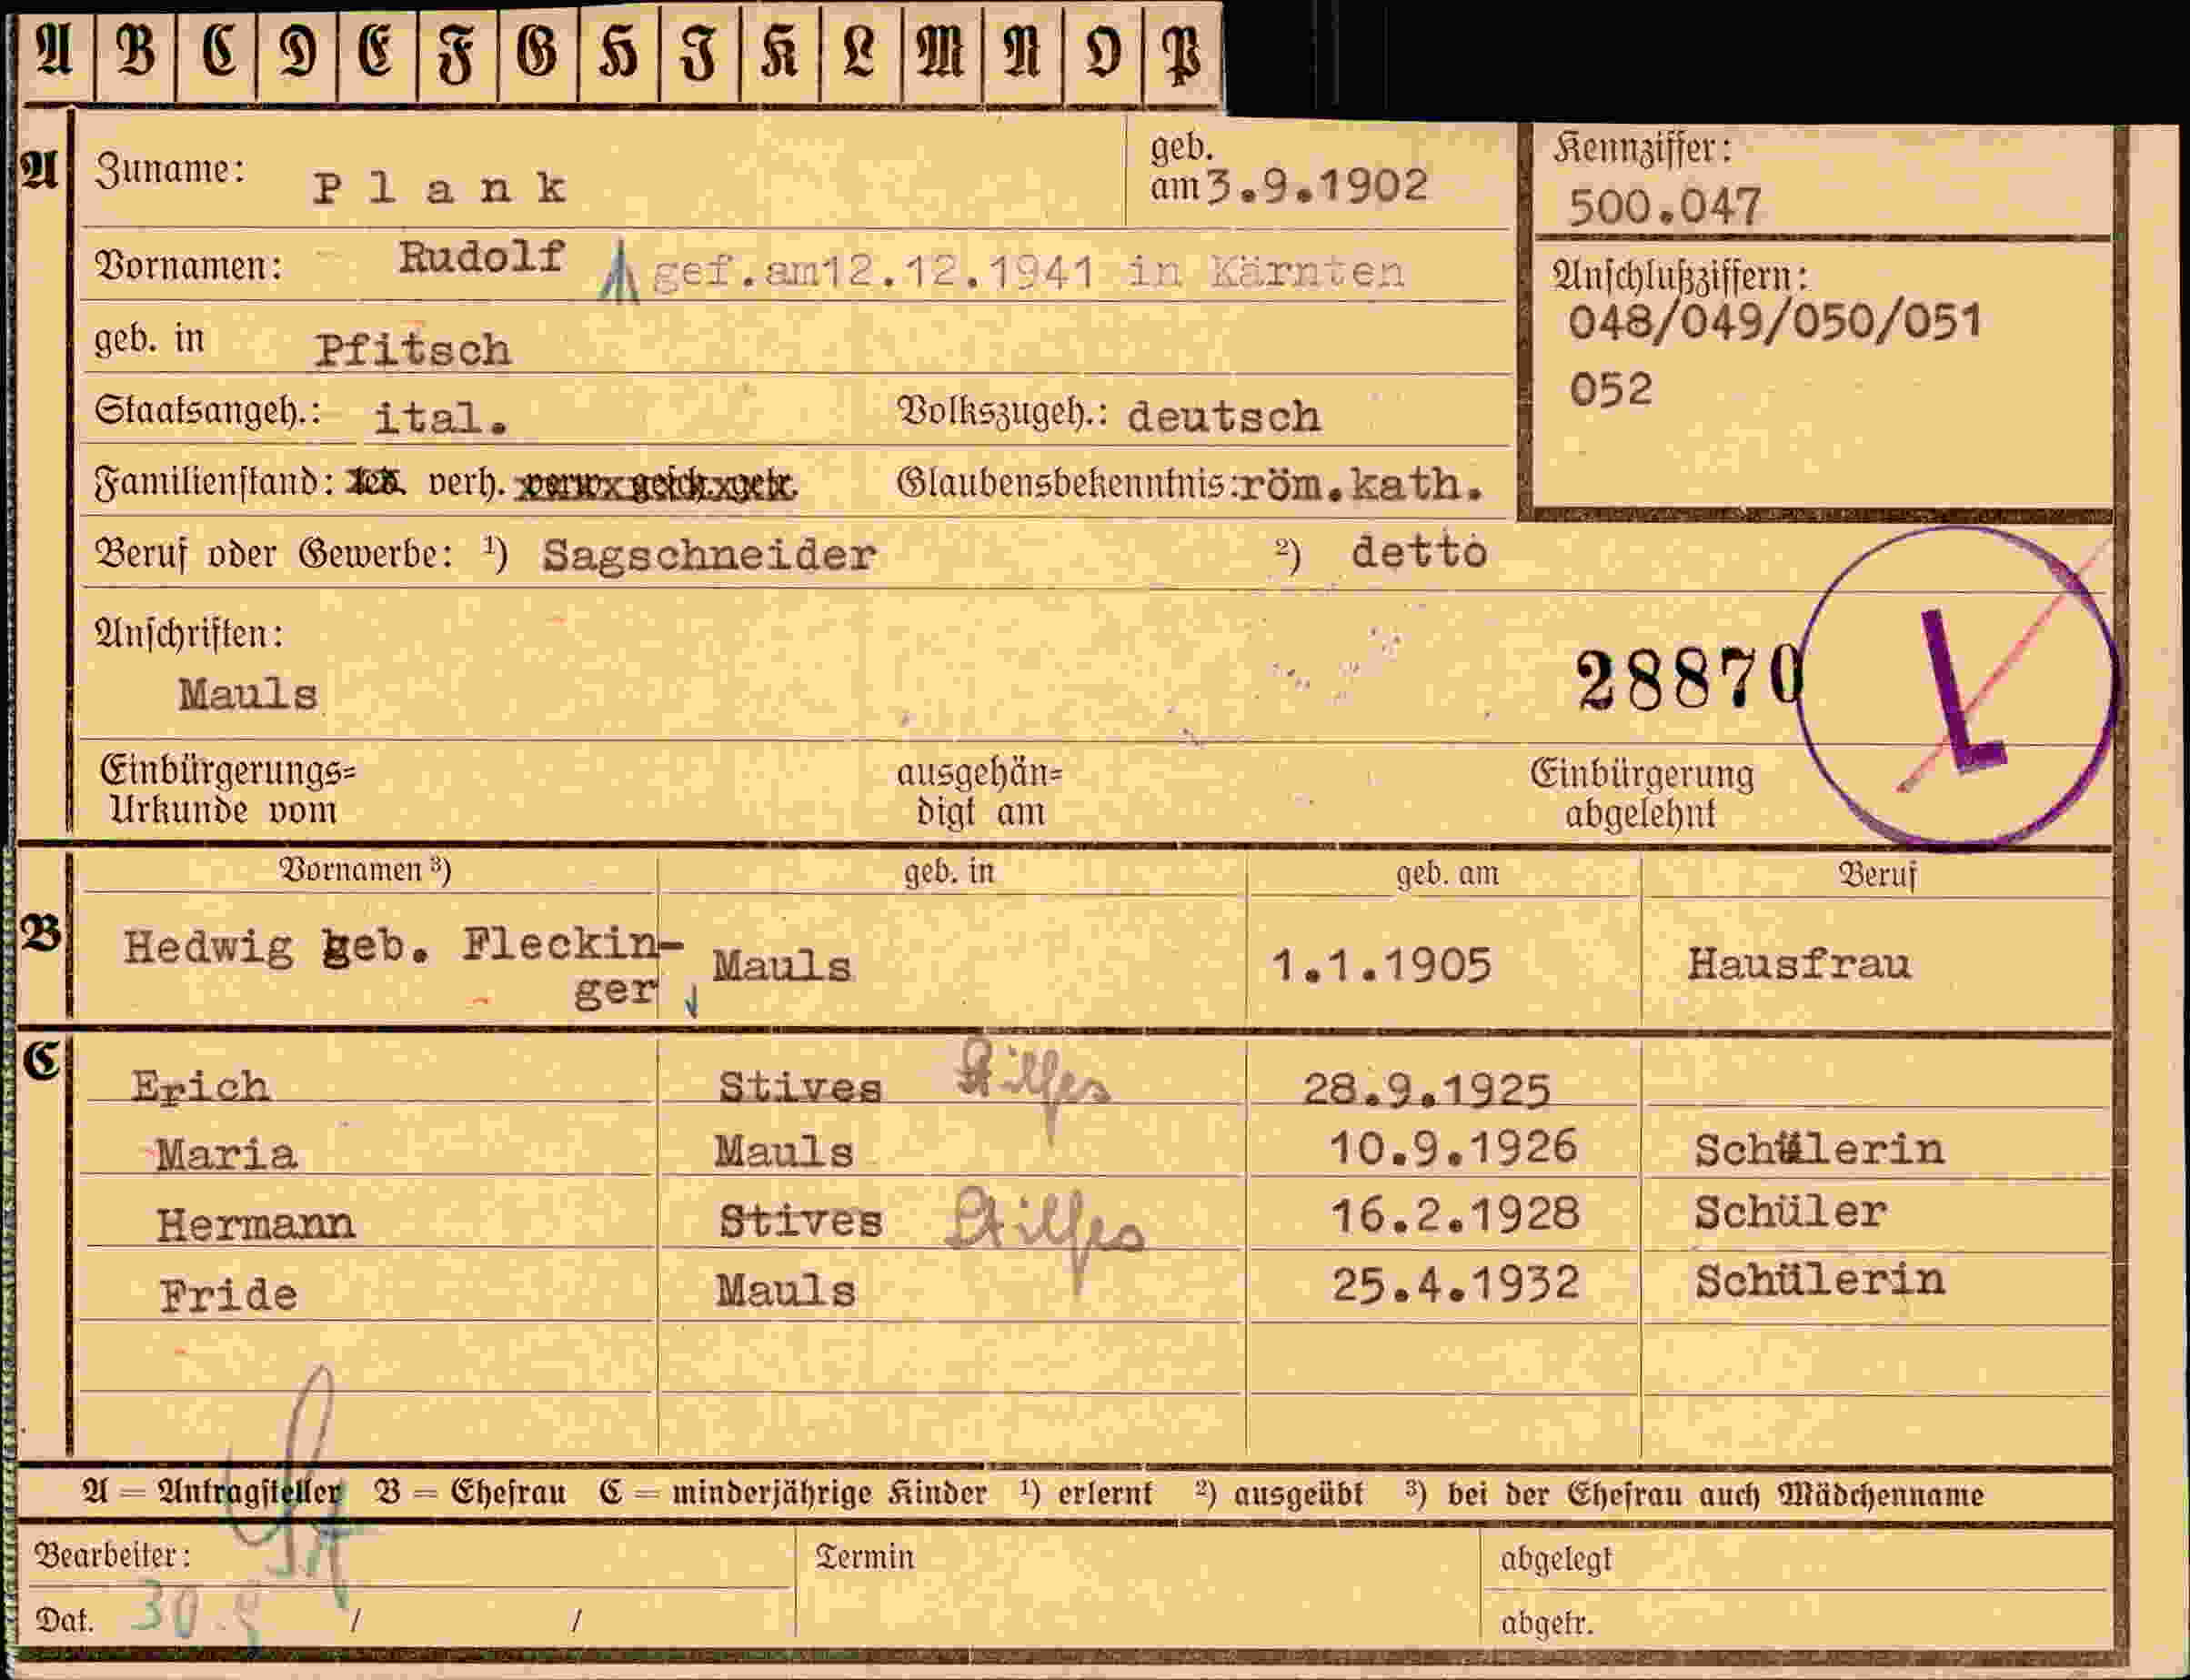 A B C D E F G H I K L M N O P
A Zuname: Plank geb. am 3.9.1902
Kennziffer: 500.047
Vornamen: Rudolf gef.am12.12.1941 in Kärnten
Anschlußziffern:
048/049/050/051
052
geb. in Pfitsch
Staatsangeh.: ital. Volkszugeh.: deutsch
Familienstand: led. verh. verw. gesch. getr. Glaubensbekenntnis: röm.kath.
Beruf oder Gewerbe: ¹) Sagschneider ²) detto
Anschriften:
Mauls
28870 L
Einbürgerungs= Urkunde vom ausgehän= digt am Einbürgerung abgelehnt
Vornamen ³) geb. in geb. am Beruf
B Hedwig geb. Fleckin-
ger Mauls 1.1.1905 Hausfrau
C Erich Stives Stilfes 28.9.1925
Maria Mauls 10.9.1926 Schülerin
Hermann Stives Stilfes 16.2.1928 Schüler
Fride Mauls 25.4.1932 Schülerin
A = Antragsteller B = Ehefrau C = minderjährige Kinder ¹) erlernt ²) ausgeübt ³) bei der Ehefrau auch Mädchenname
Bearbeiter: Termin abgelegt
Dat. 30. / / abgetr.